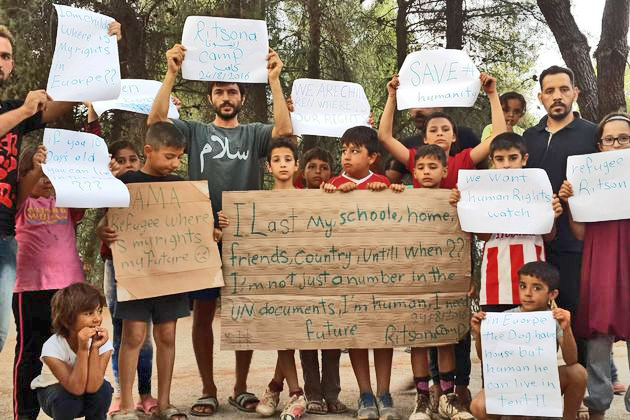 I am child
Where is
My rights
in
Euorpe??
Ritsona
ريتسونا
camp
كامب
24/8/2016
WE ARE CHILD
REN WHERE IS
OUR
SAVE #
humanity
سلام
If you 10
Days old
you can live
???
AMA
Refugee where
is my rights
my future
I Last My, schoole, home,
friends, Country, Untill When??
I'm not just a number in the
UN documents, I'm human, I need
future
24/8/2016
Ritsona camp
We want
human Rights
watch
refugee
Ritson
in Euorpe
the Dog have
house but
human can
live in
tent!!